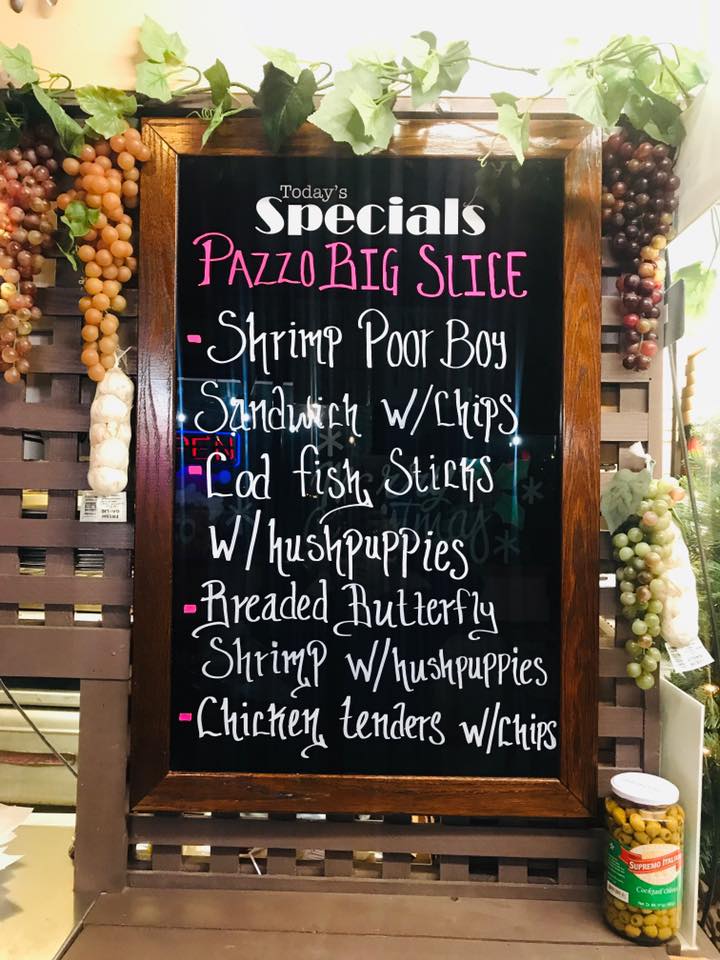 Today's
Specials
PAZZO BIG SLICE
- Shrimp Poor Boy
Sandwich w/Chips
- Cod fish Sticks
w/hushpuppies
- Breaded Butterfly
Shrimp w/hushpuppies
- Chicken tenders w/Chips
SUPREMO ITALIANO
Cocktail Olives